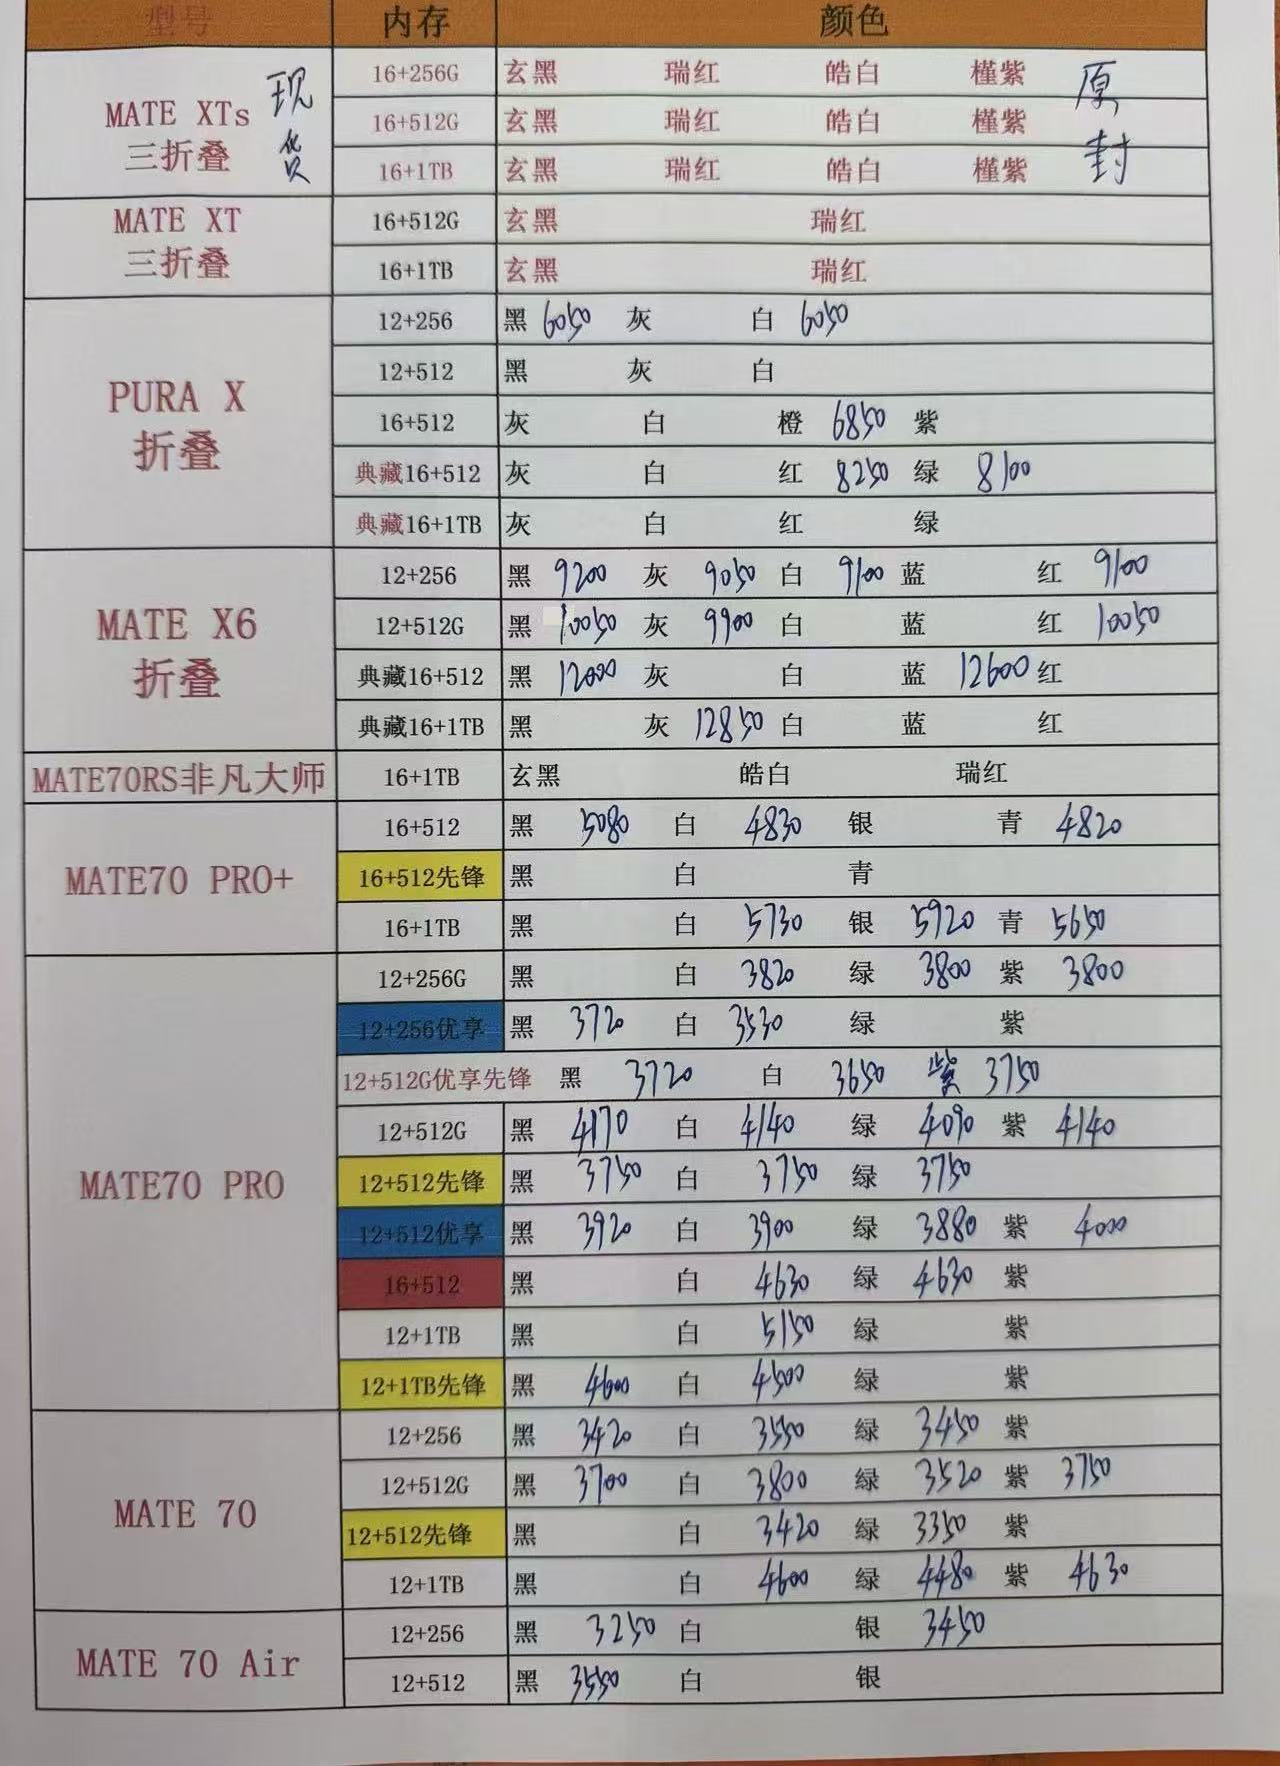 型号 内存 颜色
MATE XTs 三折叠 现货 16+256G 玄黑 瑞红 皓白 槿紫 原封
16+512G 玄黑 瑞红 皓白 槿紫
16+1TB 玄黑 瑞红 皓白 槿紫
MATE XT 三折叠 16+512G 玄黑 瑞红
16+1TB 玄黑 瑞红
PURA X 折叠 12+256 黑 6050 灰 白 6050
12+512 黑 灰 白
16+512 灰 白 橙 6850 紫
典藏16+512 灰 白 红 8250 绿 8100
典藏16+1TB 灰 白 红 绿
MATE X6 折叠 12+256 黑 9200 灰 9050 白 9100 蓝 红 9100
12+512G 黑 10050 灰 9900 白 蓝 红 10050
典藏16+512 黑 12000 灰 白 蓝 12600 红
典藏16+1TB 黑 灰 12850 白 蓝 红
MATE70RS非凡大师 16+1TB 玄黑 皓白 瑞红
MATE70 PRO+ 16+512 黑 5080 白 4830 银 青 4820
16+512先锋 黑 白 青
16+1TB 黑 白 5730 银 5920 青 5650
MATE70 PRO 12+256G 黑 白 3820 绿 3800 紫 3800
12+256优享 黑 3720 白 3530 绿 紫
12+512G优享先锋 黑 3720 白 3650 紫 3750
12+512G 黑 4170 白 4140 绿 4090 紫 4140
12+512先锋 黑 3750 白 3750 绿 3750
12+512优享 黑 3920 白 3900 绿 3880 紫 4000
16+512 黑 白 4630 绿 4630 紫
12+1TB 黑 白 5150 绿 紫
12+1TB先锋 黑 4600 白 4500 绿 紫
MATE 70 12+256 黑 3420 白 3550 绿 3450 紫
12+512G 黑 3700 白 3800 绿 3520 紫 3750
12+512先锋 黑 白 3420 绿 3350 紫
12+1TB 黑 白 4600 绿 4480 紫 4630
MATE 70 Air 12+256 黑 3250 白 银 3450
12+512 黑 3550 白 银